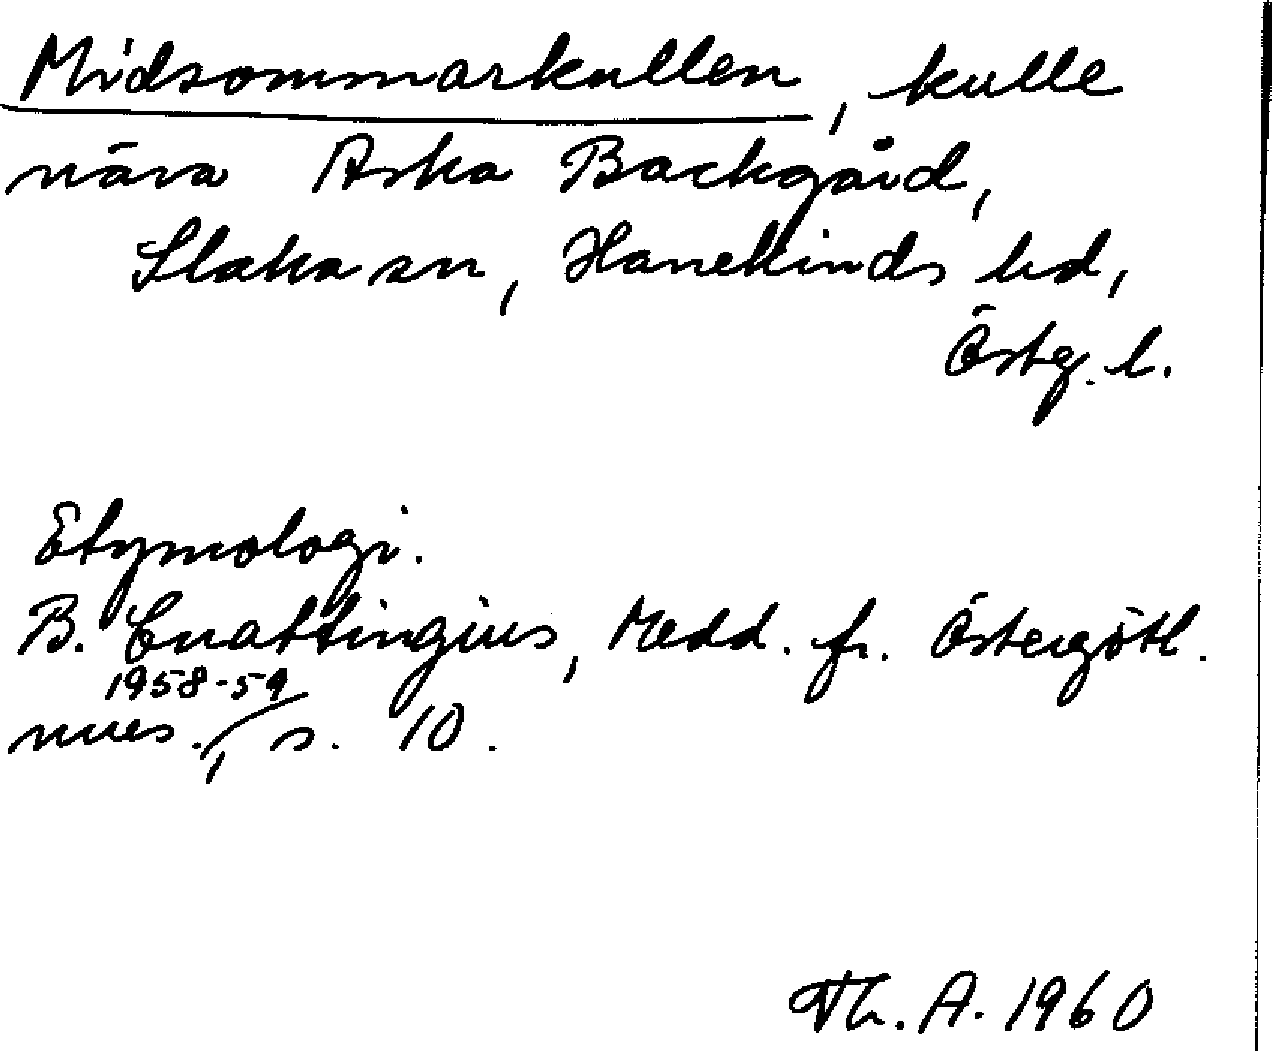 Midsommarkullen, kulle
nära Aska Backgård,
Slaka sn, Hanekinds hd,
Östg. l.
Etymologi.
B. Cnattingius, Medd. fr. Östergötl.
1958-59
mus., s. 10.
Th. A. 1960